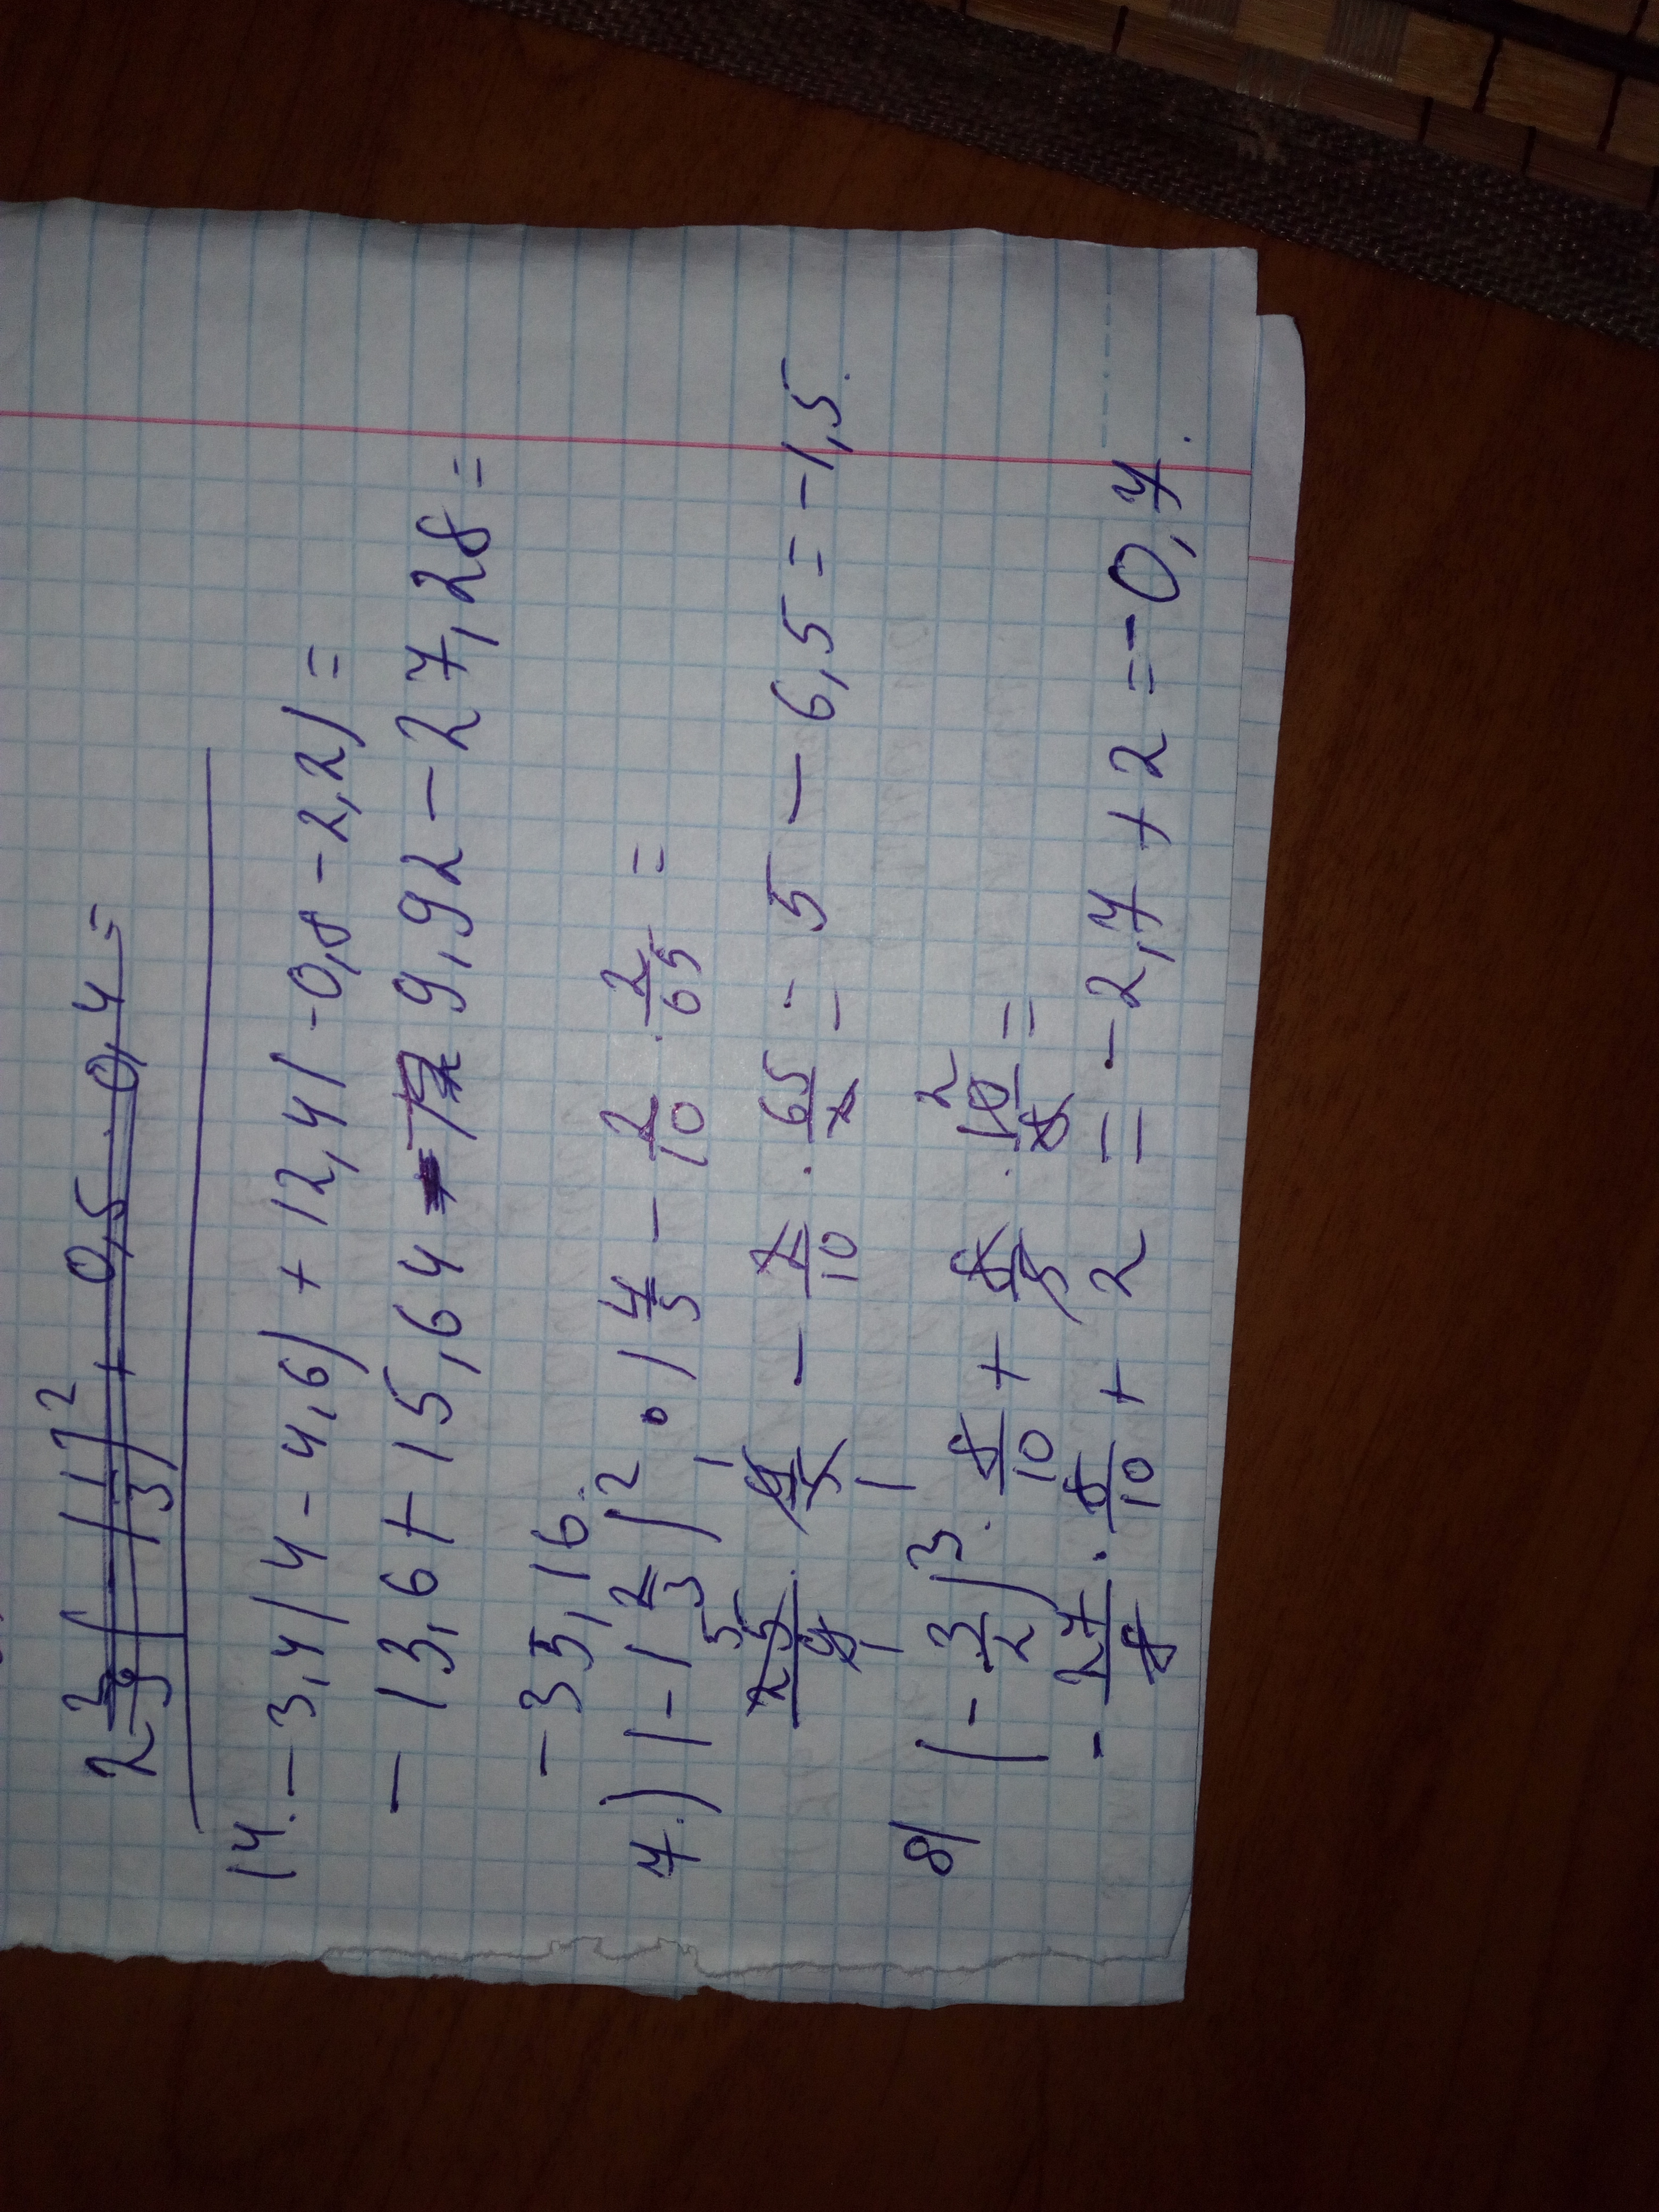 2 3/9 (1 1/3)² + 0,5 · 0,4 =
14. -3,4(4-4,6)+12,4(-0,8-2,2)=
-13,6+15,64 - 9,92-27,28=
-35,16.
7.) (-1 2/3)² · (4/5 - 2/10 · 2/65 =
25/9 · 9/5 - 2/10 · 65/2 = 5 - 6,5 = -1,5.
8) (-3/2)³ · 8/10 + 8/5 · 10/8 =
-27/8 · 8/10 + 2 = -2,7+2=-0,7.